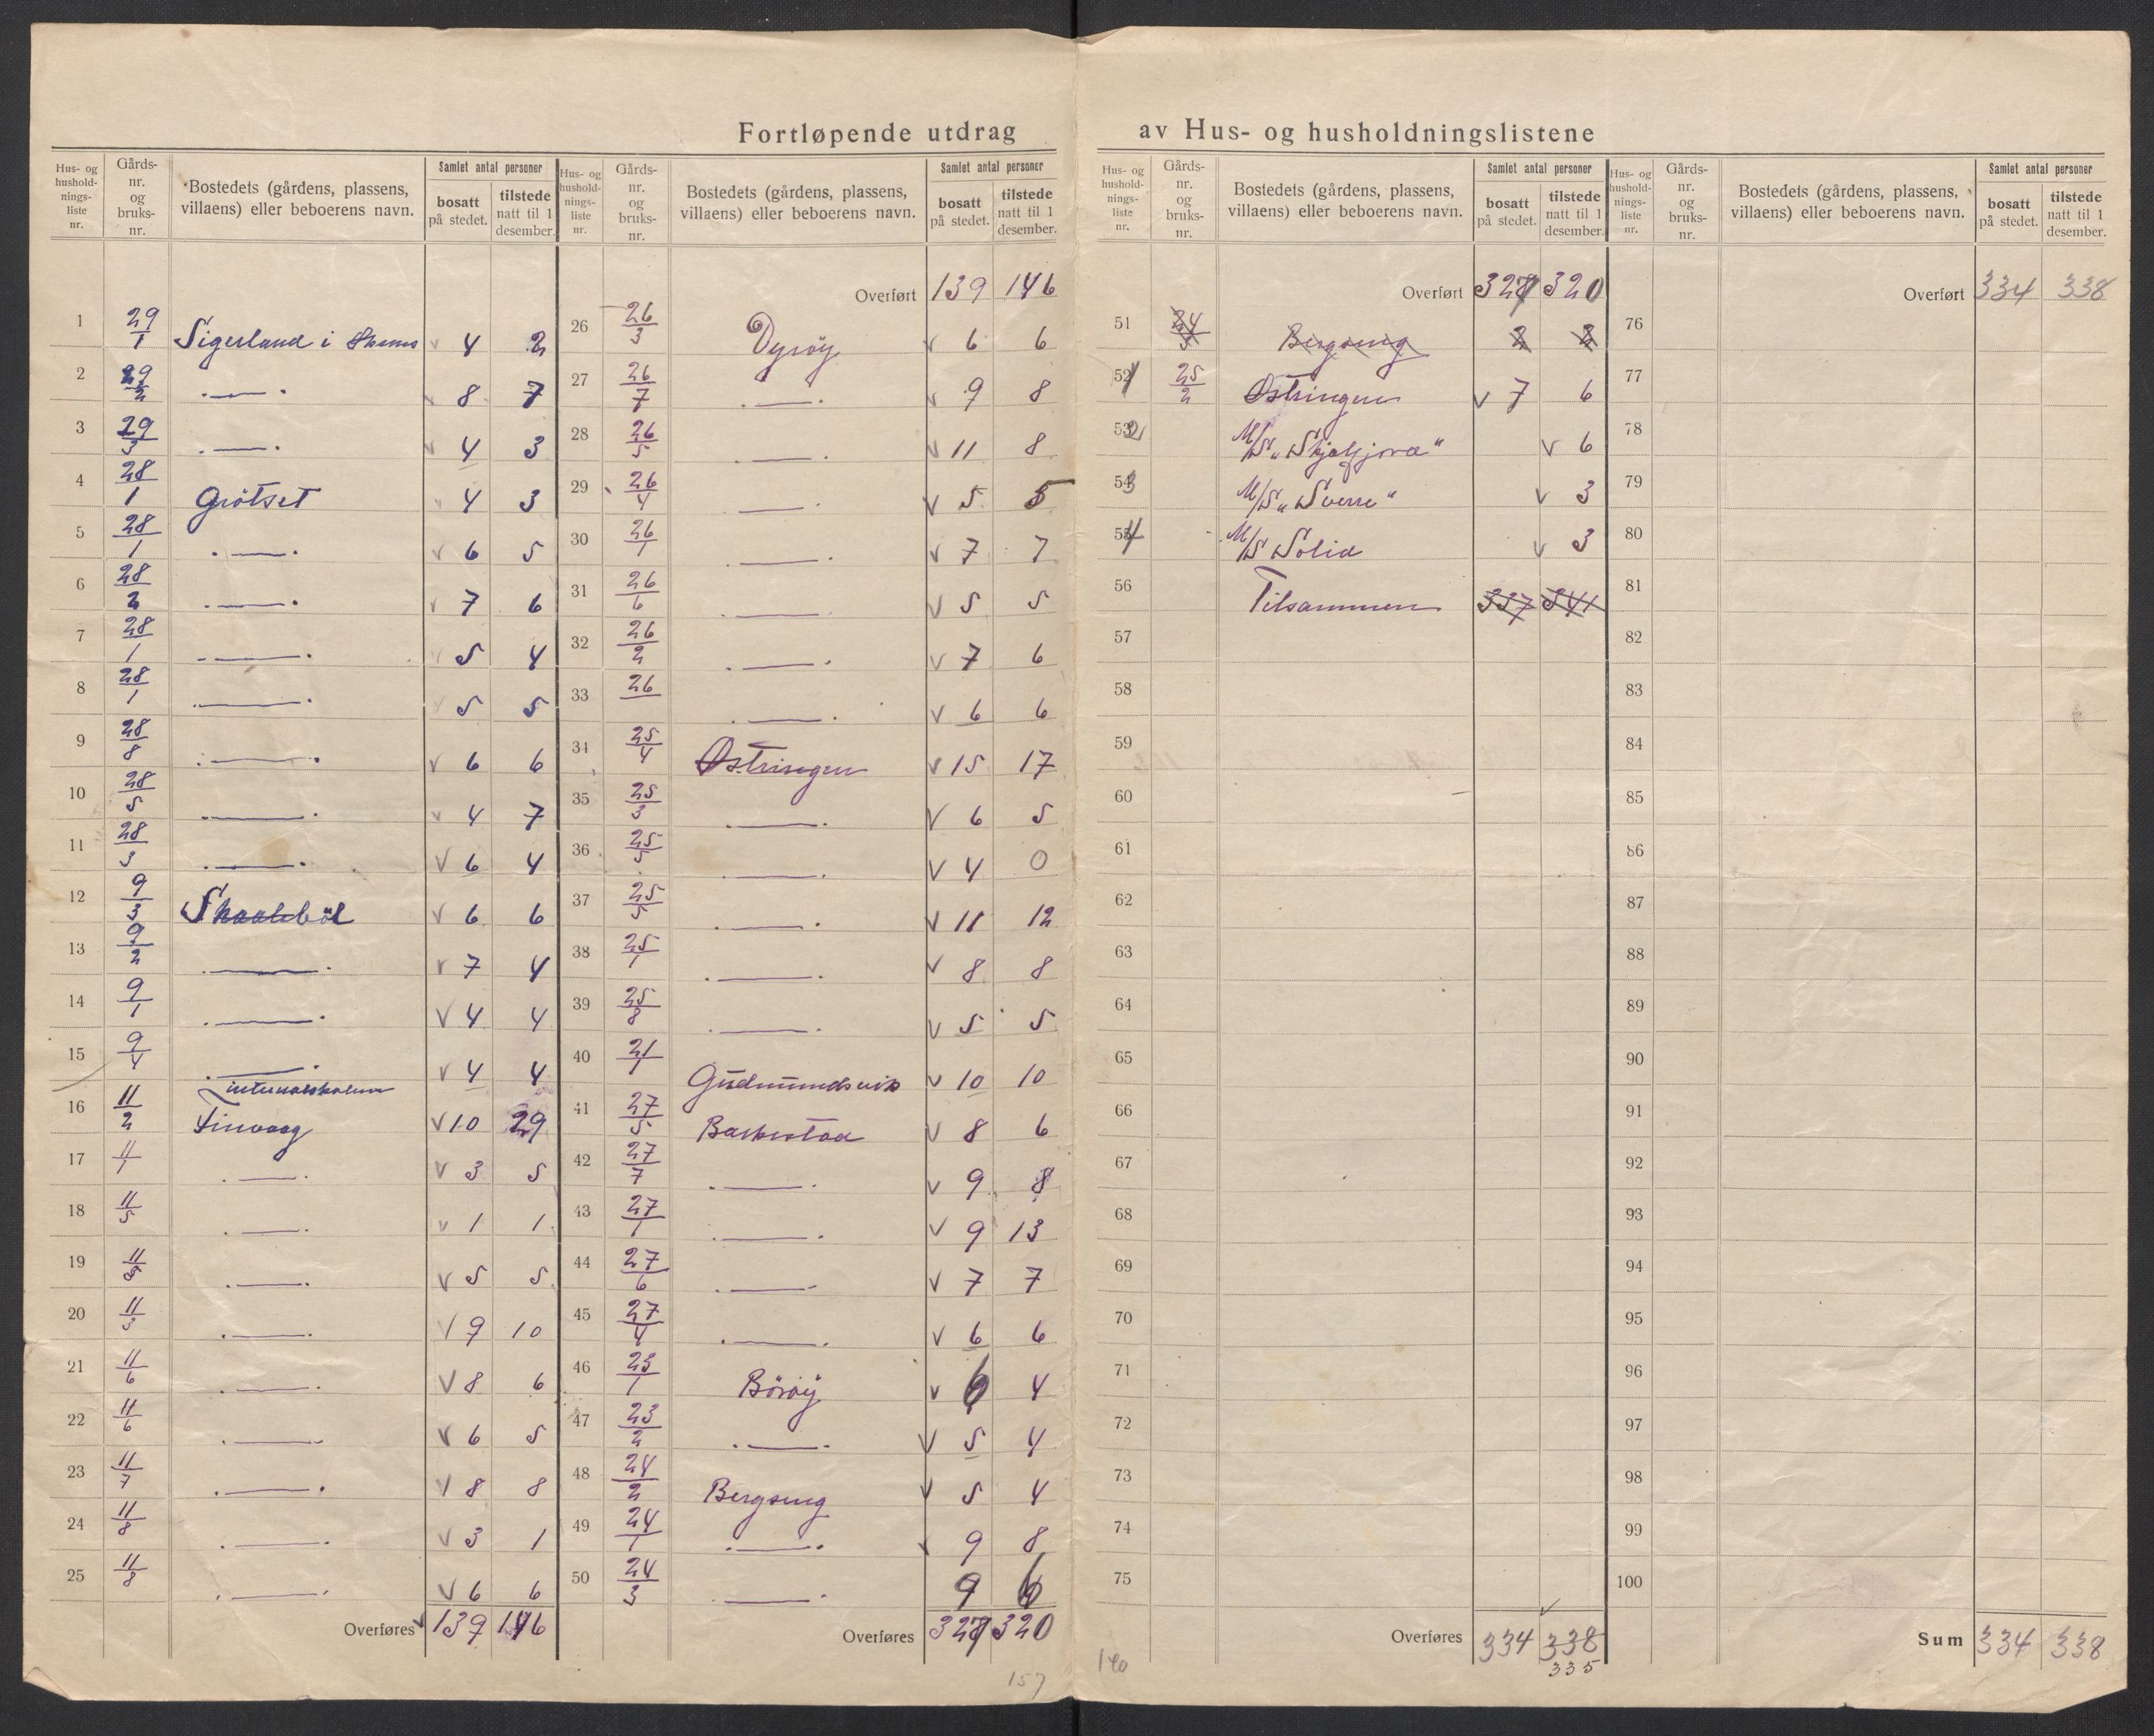 Fortløpende utdrag av Hus- og husholdningslistene
Hus- og husholdningsliste nr. | Gårds-nr. og bruks-nr. | Bostedets (gårdens, plassens, villaens) eller beboerens navn. | Samlet antal personer bosatt på stedet. | tilstede natt til 1 desember.
1 29/1 Sigerland i 4 2
2 29/2 —"— 8 7
3 29/3 —"— 4 3
4 28/1 Grötset 4 3
5 28/1 —"— 6 5
6 28/2 —"— 7 6
7 28/1 —"— 5 4
8 28/1 —"— 5 5
9 28/8 —"— 6 6
10 28/5 —"— 4 7
11 28/3 —"— 6 4
12 9/3 Skaaleböl 6 6
13 9/2 —"— 7 4
14 9/1 —"— 4 4
15 9/4 —"— 4 4
internatskolen
16 11/2 Finvaag 10 29
17 11/1 —"— 3 5
18 11/5 —"— 1 1
19 11/9 —"— 5 5
20 11/3 —"— 9 10
21 11/6 —"— 8 6
22 11/6 —"— 6 5
23 11/7 —"— 8 8
24 11/8 —"— 3 1
25 11/8 —"— 6 6
Overføres 139 146
Hus- og husholdningsliste nr. | Gårds-nr. og bruks-nr. | Bostedets (gårdens, plassens, villaens) eller beboerens navn. | Samlet antal personer bosatt på stedet. | tilstede natt til 1 desember.
Overført 139 146
26 26/3 Dyröy 6 6
27 26/7 —"— 9 8
28 26/5 —"— 11 8
29 26/4 —"— 5 5
30 26/1 —"— 7 7
31 26/6 —"— 5 5
32 26/2 —"— 7 6
33 26 —"— 6 6
34 25/4 Østringen 15 17
35 25/3 —"— 6 5
36 25/5 —"— 4 0
37 25/5 —"— 11 12
38 25/1 —"— 8 8
39 25/8 —"— 5 5
40 21/1 Gudmundsvik 10 10
41 27/5 Barkestad 8 6
42 27/7 —"— 9 8
43 27/1 —"— 9 13
44 27/6 —"— 7 7
45 27/4 —"— 6 6
46 23/1 Böröy 6 4
47 23/2 —"— 5 4
48 24/2 Bergseng 5 4
49 24/1 —"— 9 8
50 24/3 —"— 9 6
Overføres 327 320
157
Hus- og husholdningsliste nr. | Gårds-nr. og bruks-nr. | Bostedets (gårdens, plassens, villaens) eller beboerens navn. | Samlet antal personer bosatt på stedet. | tilstede natt til 1 desember.
Overført 327 320
51 24/3 Bergseng 2 2
52 1 25/2 Østringen 7 6
53 2 M/S "Skjelfjord" 6
54 3 M/S "Sverre" 3
55 4 M/S Solid 3
56 Tilsammen 337 341
57
58
59
60
61
62
63
64
65
66
67
68
69
70
71
72
73
74
75
Overføres 334 338
335
140
Hus- og husholdningsliste nr. | Gårds-nr. og bruks-nr. | Bostedets (gårdens, plassens, villaens) eller beboerens navn. | Samlet antal personer bosatt på stedet. | tilstede natt til 1 desember.
Overført 334 338
76
77
78
79
80
81
82
83
84
85
86
87
88
89
90
91
92
93
94
95
96
97
98
99
100
Sum 334 338